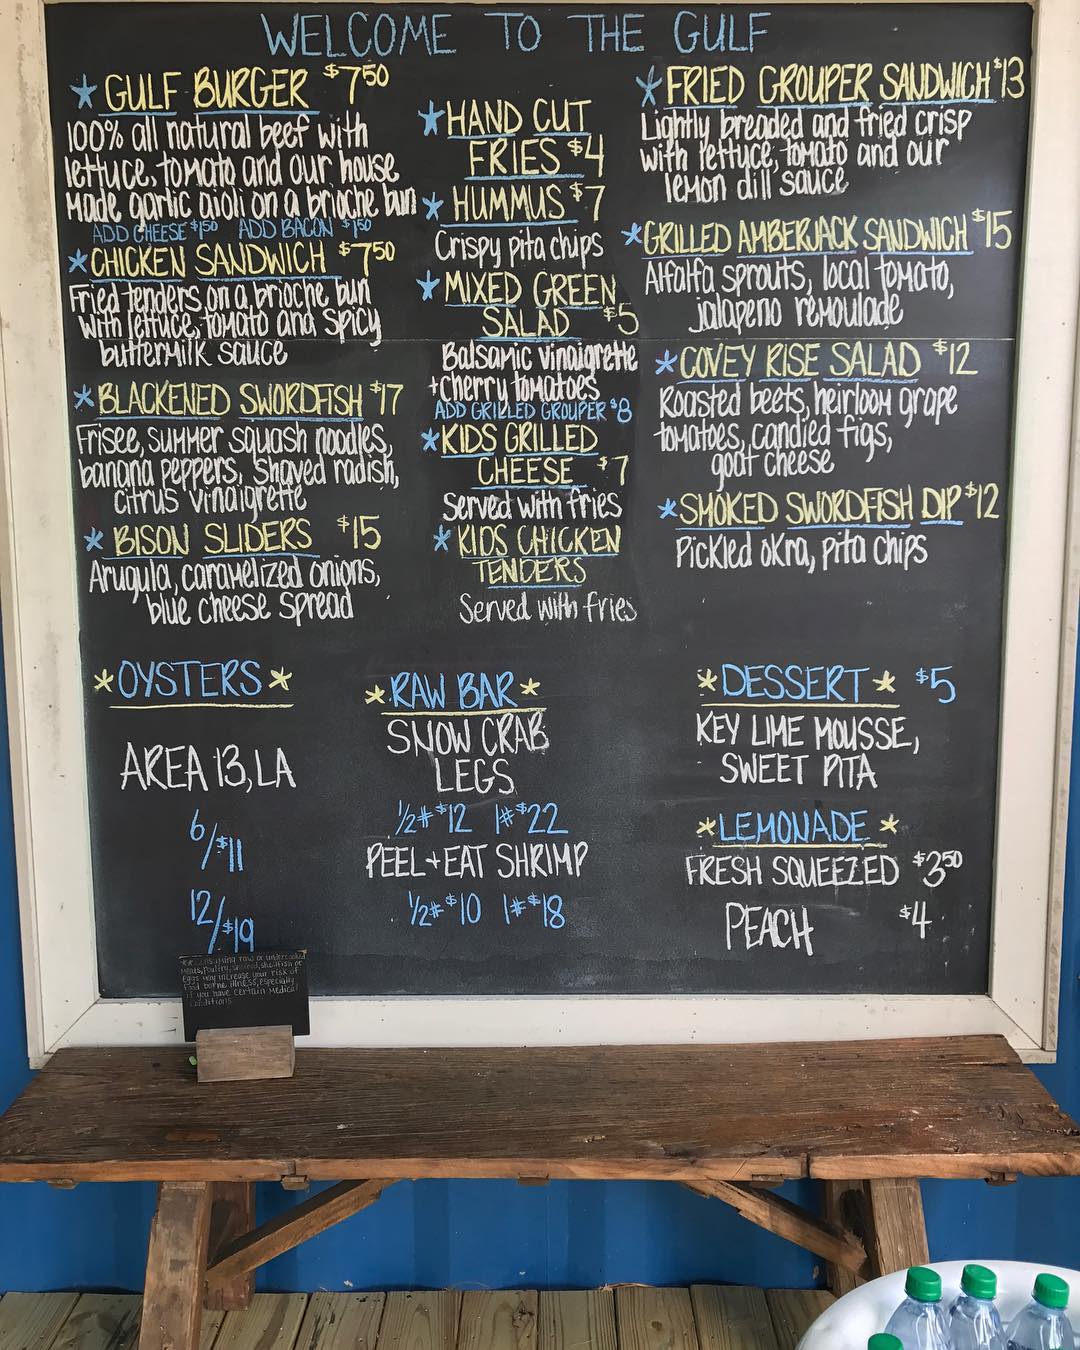 WELCOME TO THE GULF
* GULF BURGER $7 50
100% all natural beef with
lettuce, tomato and our house
made garlic aioli on a brioche bun
ADD CHEESE $1 50 ADD BACON $1 50
* CHICKEN SANDWICH $7 50
Fried tenders on a brioche bun
with lettuce, tomato and spicy
buttermilk sauce
* BLACKENED SWORDFISH $17
Frisee, summer squash noodles,
banana peppers, shaved radish,
citrus vinaigrette
* BISON SLIDERS $15
Arugula, caramelized onions,
blue cheese spread
* HAND CUT
FRIES $4
* HUMMUS $7
Crispy pita chips
* MIXED GREEN
SALAD $5
Balsamic vinaigrette
+cherry tomatoes
ADD GRILLED GROUPER $8
* KIDS GRILLED
CHEESE $7
Served with fries
* KIDS CHICKEN
TENDERS
Served with fries
* FRIED GROUPER SANDWICH $13
Lightly breaded and fried crisp
with lettuce, tomato and our
lemon dill sauce
* GRILLED AMBERJACK SANDWICH $15
Alfalfa sprouts, local tomato,
jalapeno remoulade
* COVEY RISE SALAD $12
Roasted beets, heirloom grape
tomatoes, candied figs,
goat cheese
* SMOKED SWORDFISH DIP $12
Pickled okra, pita chips
* OYSTERS *
AREA 13, LA
6/$11
12/$19
* RAW BAR *
SNOW CRAB
LEGS
1/2# $12 1# $22
PEEL + EAT SHRIMP
1/2# $10 1# $18
* DESSERT * $5
KEY LIME MOUSSE,
SWEET PITA
* LEMONADE *
FRESH SQUEEZED $3 50
PEACH $4
consuming raw or undercooked
meats, poultry, seafood, shellfish or
eggs may increase your risk of
food borne illness, especially
if you have certain medical
conditions